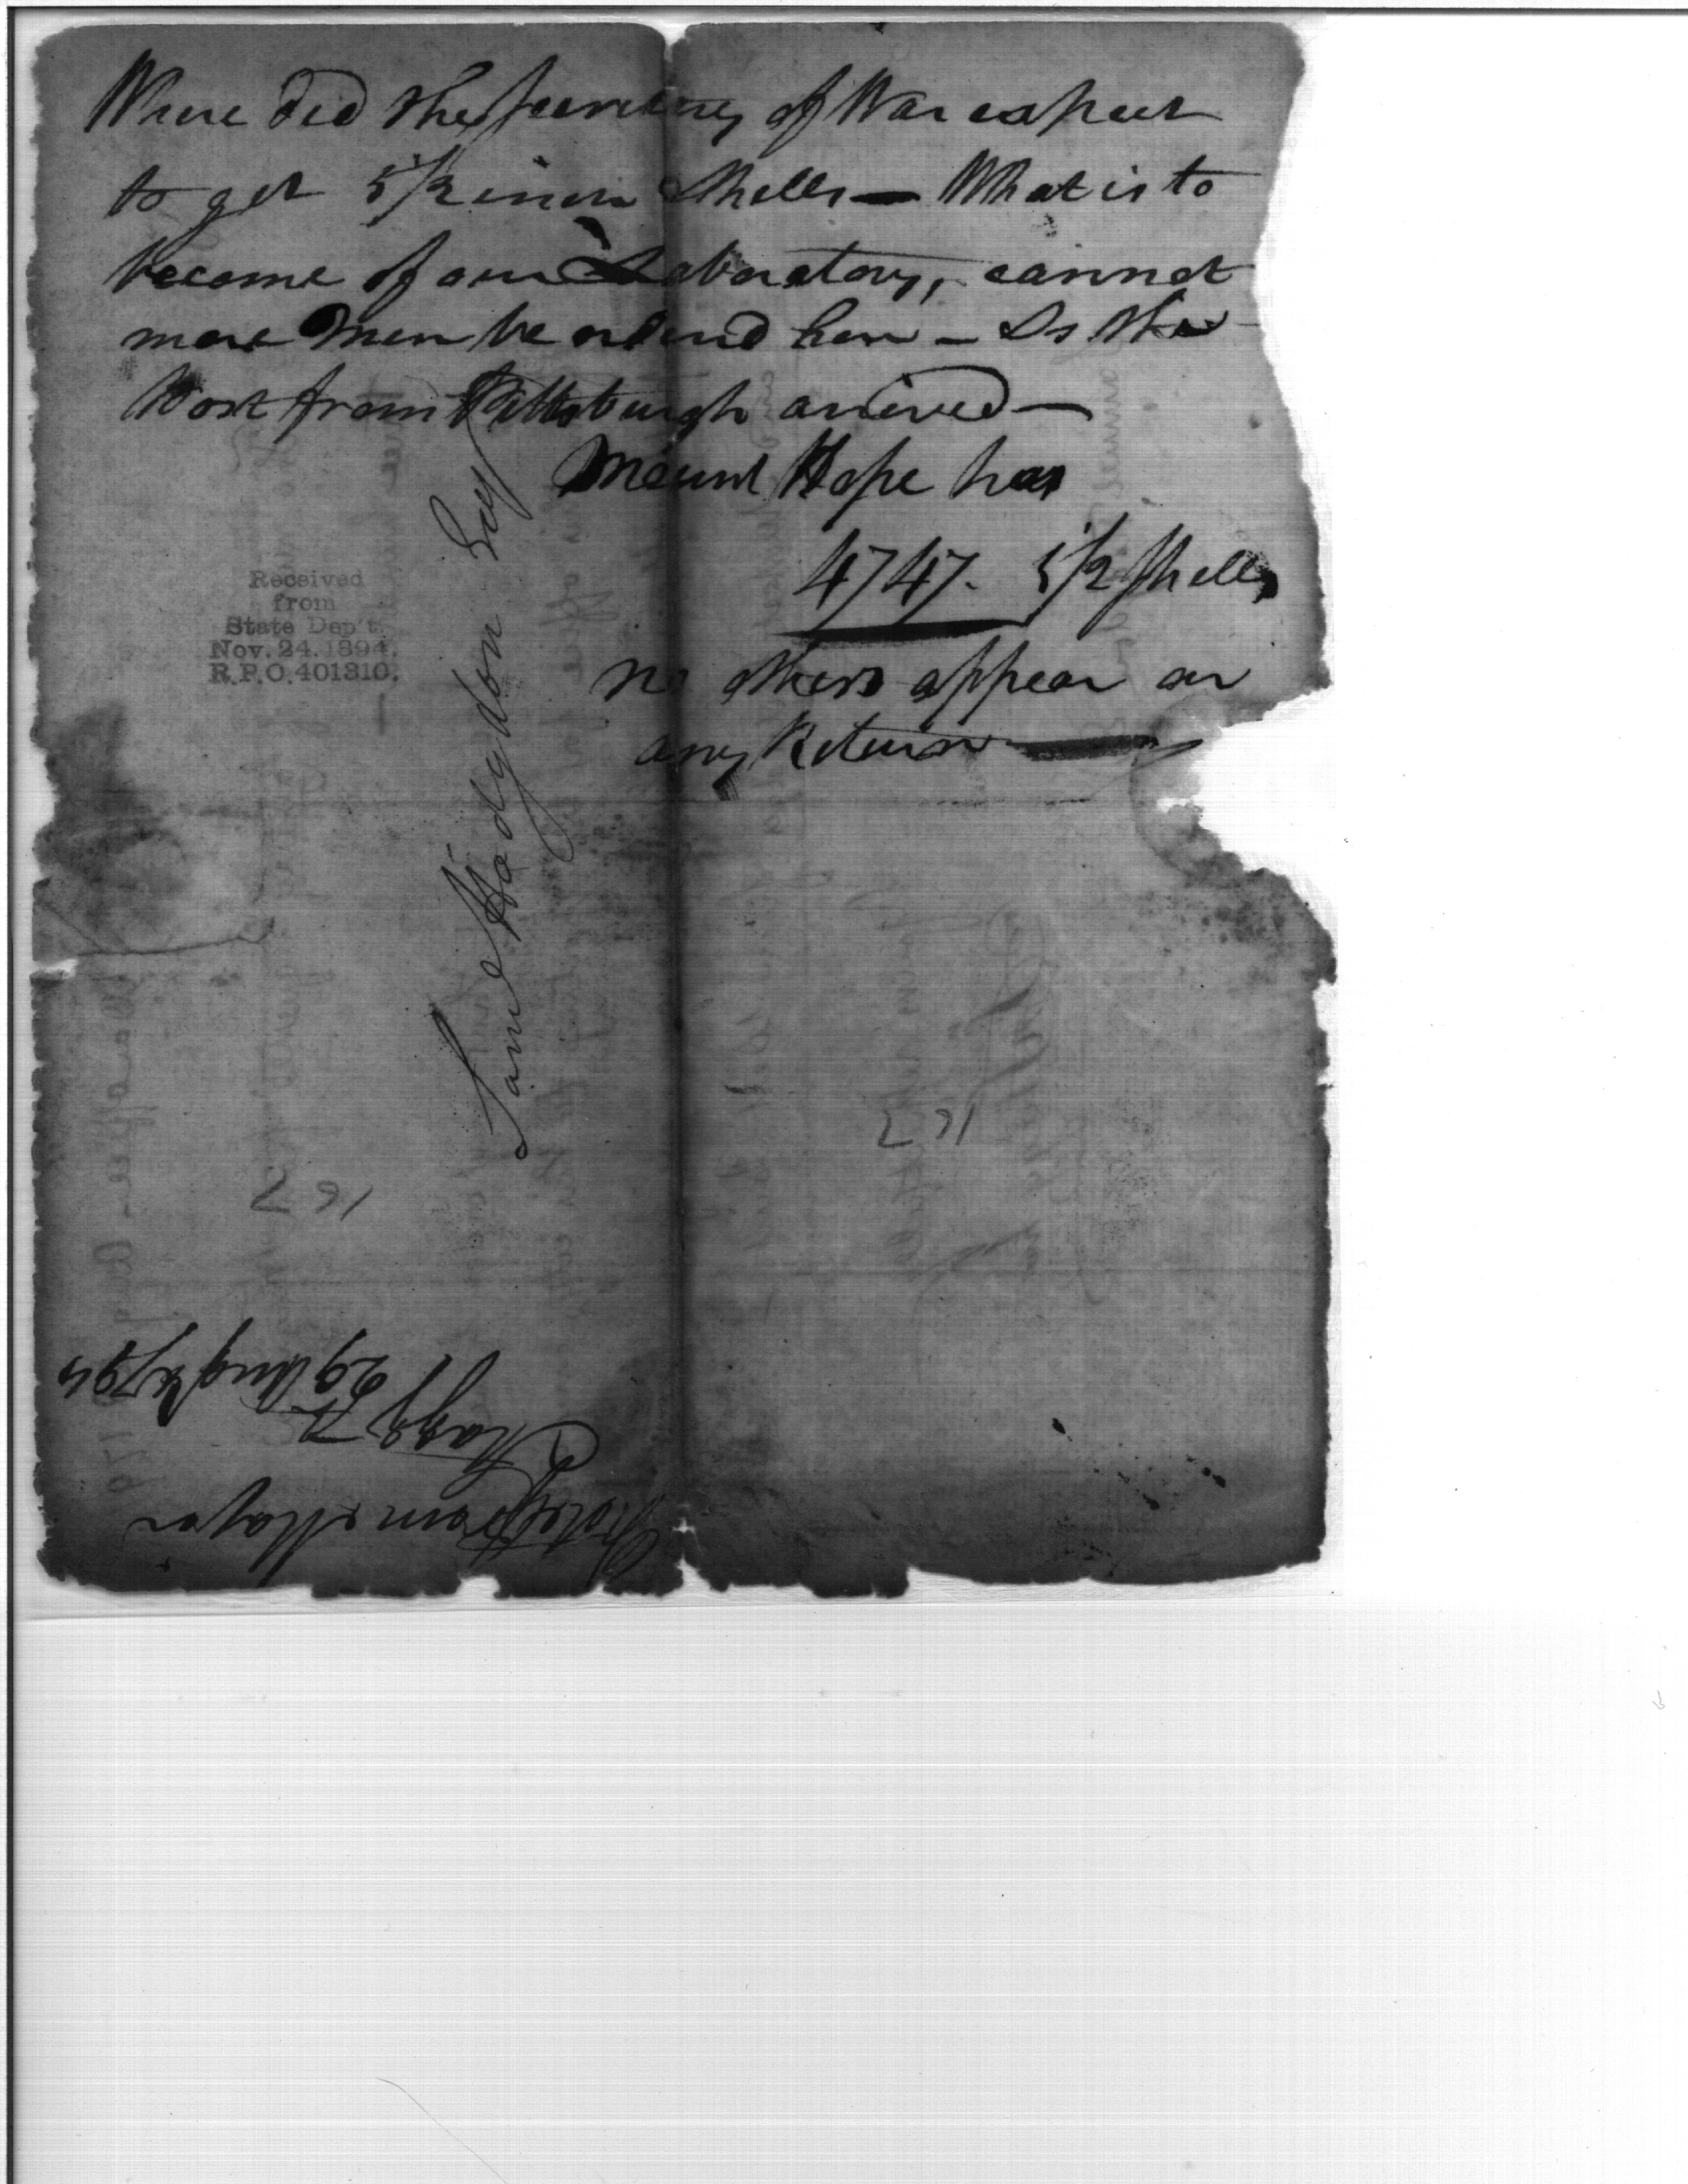 Where did the Secretary of War expect
to get 5 1/2 inch Shells — What is to
become of our Laboratory, cannot
more men be ordered here — Is the
Post from Pittsburgh arrived —
Mount Hope has
4747. 5 1/2 Shells
no others appear on
any Return
Saml Hodgdon Esq
Received
from
State Dep't.
Nov. 24. 1894.
R.P.O. 401310.
167
167
Note from Major
Stagg
29 Augt 1794